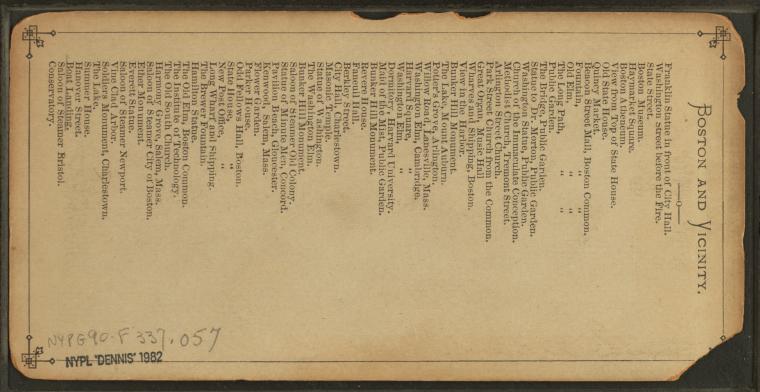 BOSTON AND VICINITY.
Franklin Statue in front of City Hall.
Washington Street before the Fire.
State Street.
Boston Museum.
Haymarket Square.
Boston Atheneum.
View from Top of State House.
Old State House.
Quincy Market.
Beacon Street Mall, Boston Common.
Fountain, " "
Old Elm, " "
The Long Path, " "
Public Garden.
The Bridge, Public Garden.
Statue, Desertion, Public Garden.
Washington Statue, Public Garden.
Church of the Immaculate Conception.
Methodist Church, Tremont Street.
Arlington Street Church.
Park Street Church from the Common.
Great Organ, Music Hall
Wharves and Shipping, Boston.
View near Point Shirley.
Bunker Hill Monument.
The Lake, Mount Auburn.
Potter's Grove, Arlington.
Willow Road, Lanesville, Mass.
Washington Elm, Cambridge.
Harvard Square, "
Washington Elm, "
Dormitory, Harvard University.
Maid of the Mist, Public Garden.
Bunker Hill Monument.
Revere House.
Faneuil Hall.
Berkley Street.
City Hall, Charlestown.
Masonic Temple.
Statue of Washington.
The Washington Elm.
Bunker Hill Monument.
Saloon of Steamer Old Colony.
Statue of Minute Men, Concord.
Pavilion Beach, Gloucester.
Kenwood, Salem, Mass.
Flower Garden.
Parker House.
Odd Fellows Hall, Boston.
State House, "
New Post Office, "
Long Wharf and Shipping.
The Brewer Fountain.
Hamilton Statue.
The Old Elm, Boston Common.
The Institute of Technology.
The Old South Church.
Harmony Grove, Salem, Mass.
Saloon of Steamer City of Boston.
Ether Monument.
Everett Statue.
Saloon of Steamer Newport.
Vine Covered Arbor.
Soldiers Monument, Charlestown.
The Lake.
Summer House.
Hanover Street.
Boat Landing.
Saloon of Steamer Bristol.
Conservatory.
NYPG90-F337.057
NYPL "DENNIS" 1982